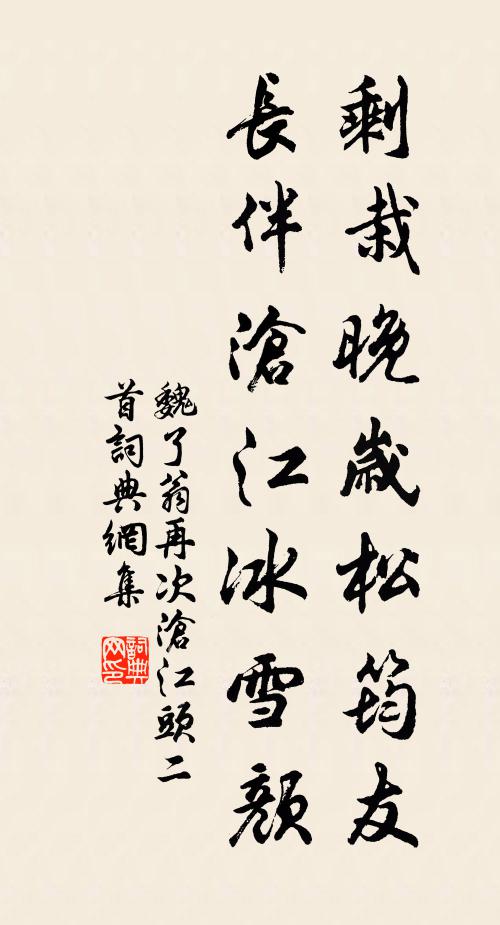 剩栽晚歲松筠友
長伴滄江冰雪顏
魏了翁再次滄江頭二
首詞典網集
詞典
网印